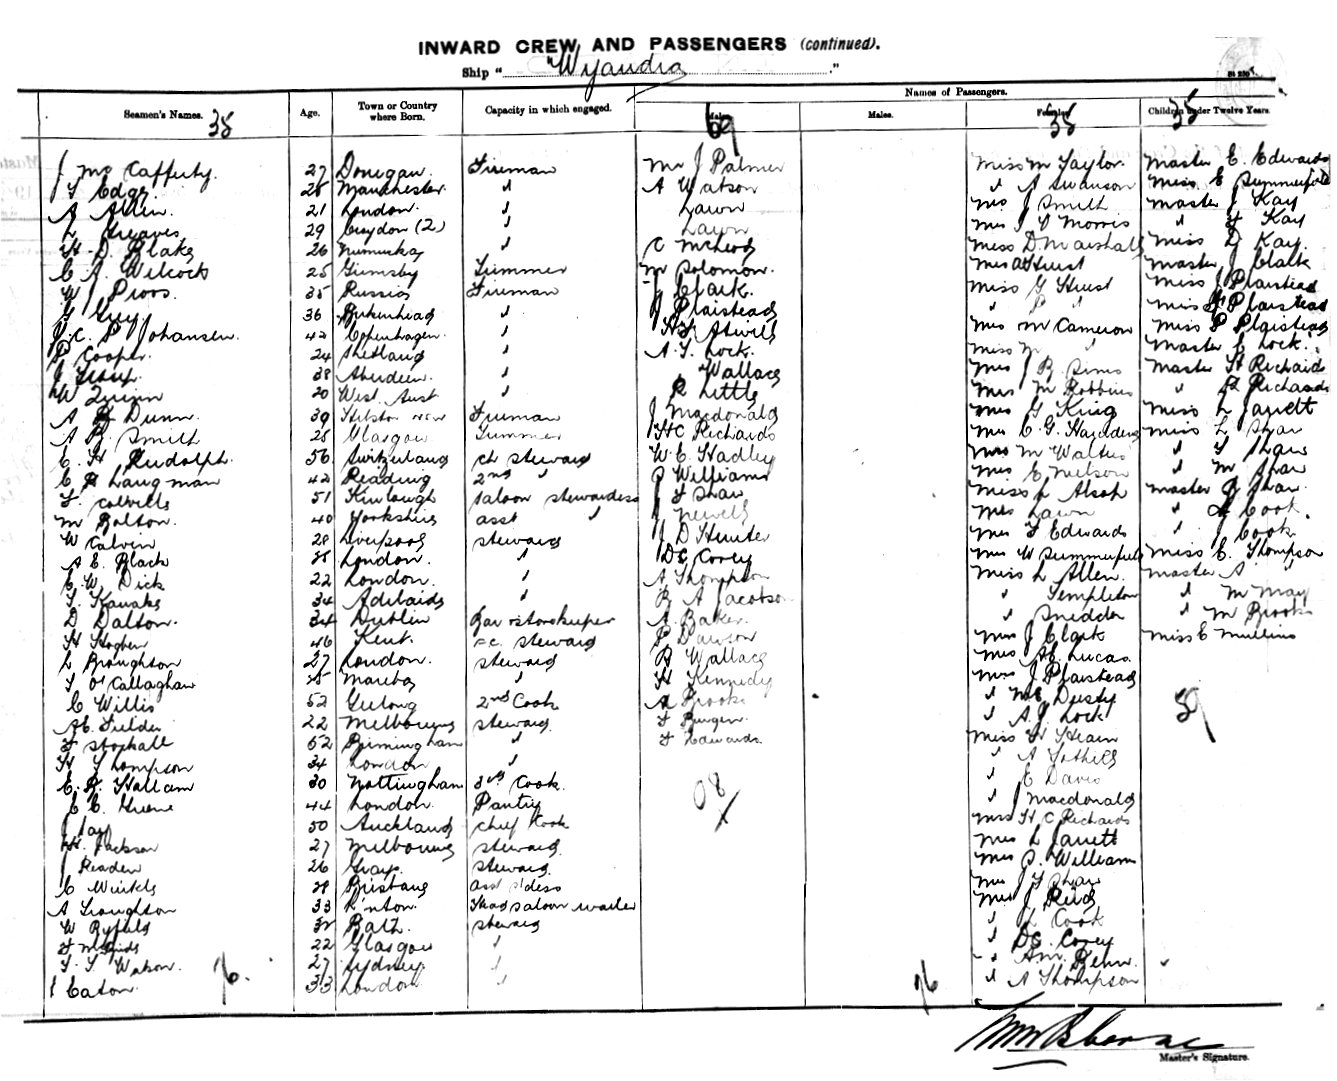 INWARD CREW AND PASSENGERS (continued).
Ship "Wyandra"
Names of Passengers.
Seamen's Names. Age. Town or Country where Born. Capacity in which engaged. Males. Males. Females. Children under Twelve Years.
38 69 38 35
J McCafferty. 27 Donegan. Fireman Mr J Palmer Miss M Taylor. Master E. Edwards
Edgr 28 Manchester " A Watson " A Swanson Miss E Summerfield
A Allen. 21 London. " Lawn Mrs J Smith Master J Kay
L Greaves 29 Croydon (2) " Lawn Mrs Morris " F Kay
H. D. Blake 26 " C McLeod Miss D Marshall Miss D Kay.
C A. Wilcock 25 Grimsby Trimmer M Solomon. Mrs Hurst Master J Clark
W Pivos. 35 Russia Fireman J Clark. Miss G Hurst Miss J Plaistead
G Guy. 36 Birkenhead " J Plaistead " Miss Plaistead
J. C. P Johansen. 42 Copenhagen. " Atwill Mrs M Cameron Miss P Plaistead
P Cooper. 24 Shetland " A. J. Lock. Miss M " Master E Lock.
J 38 Aberdeen. " Wallace Mrs J B Sims Master H Richards
W Quinn 20 West. Aust " R Little Mrs M Robbins " Richards
A Dunn. 39 Helston Fireman J Macdonald Mrs G King Miss L Jarrett
A Smith 28 Glasgow Trimmer H C Richards Mrs C. G. Harddens Miss L Shaw
C. H Rudolph. 56 Switzerland ch steward W. C. Hadley Mrs M Walters " Shaw
C Langman 42 Reading 2nd " P Williams Mrs E Nelson " M Shaw
F. Colville 51 Kinlough saloon stewardess J F Shaw Miss L Alsop Master Shaw.
M Bolton. 40 Yorkshire asst " J Newell Mrs Lawn " Cook.
W Calvin 28 Liverpool steward J D Hunter Mrs F Edwards " J Cook
A E. Black 28 London. " D C Corey Mrs W Summerfield Miss C. Thompson
C. W. Dick 22 London. " A Thompson Miss L Allen. Master A "
Kawake 34 Adelaide " R A Jacobson " Templeton " M May
D Dalton. 34 Dublin Bar storekeeper A. Baker. " Snedden " M Brooks
H Hogben 46 Kent. F.C. steward P Dawson Mrs J Clark Miss E Mullins
L Broughton 27 London. steward R Wallace Mrs Lucas
J O'Callaghan 25 Mareeba " H Kennedy Mrs J Plaistead
C Willis 52 Geelong 2nd Cook A Brooks " Dusty
Fielder 22 Melbourne steward F Burgen " A. J. Lock 59
F Stockall 52 Birmingham " F Edwards Miss H Hearn
H Thompson 34 London " " A Tothill
E. R. Hallam 30 Nottingham 3rd Cook. 08 " E Davis
E E. Greene 44 London. Pantry " J Macdonald
J Jay 50 Auckland chief cook Mrs H C Richards
H. Jackson 27 Melbourne steward Mrs L Jarrett
J Readen 26 Grays. steward. Mrs P. Williams
C Winkle 28 Brisbane asst s'dess Mrs J F Shaw
A Troughton 33 Kinton. Head saloon waiter Mrs J Reid
W Byfield 32 Bath. steward " L Cook
F 22 Glasgow " " D C. Corey
T. T. Watson. 27 Sydney. " " A.M. Benn.
Eaton. 33 London " " A Thompson
76. 76
Master's Signature.